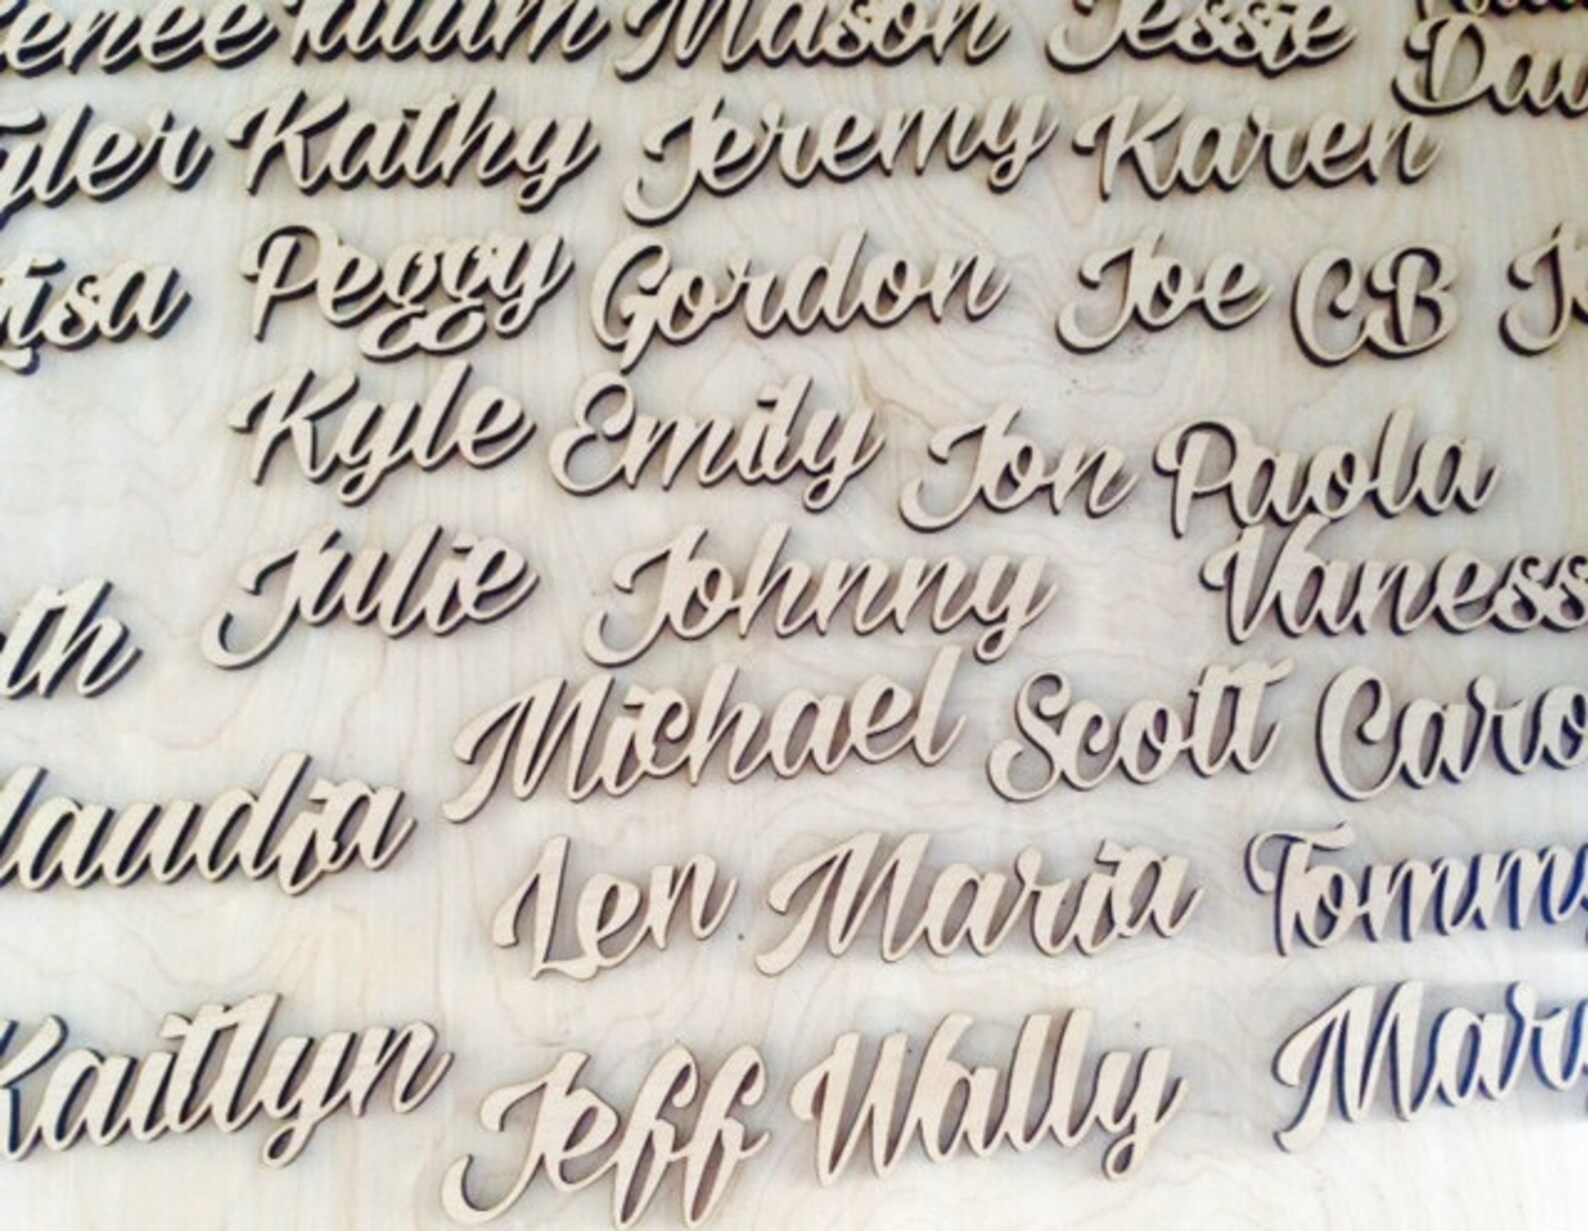 enee Tatum Mason Jessie
Dav
yler Kathy Jeremy Karen
isa Peggy Gordon Joe CB J
Kyle Emily Jon Paola
th Julie Johnny Vaness
Michael Scott Caro
laudia
Len Maria Tommy
Kaitlyn Jeff Wally Mary